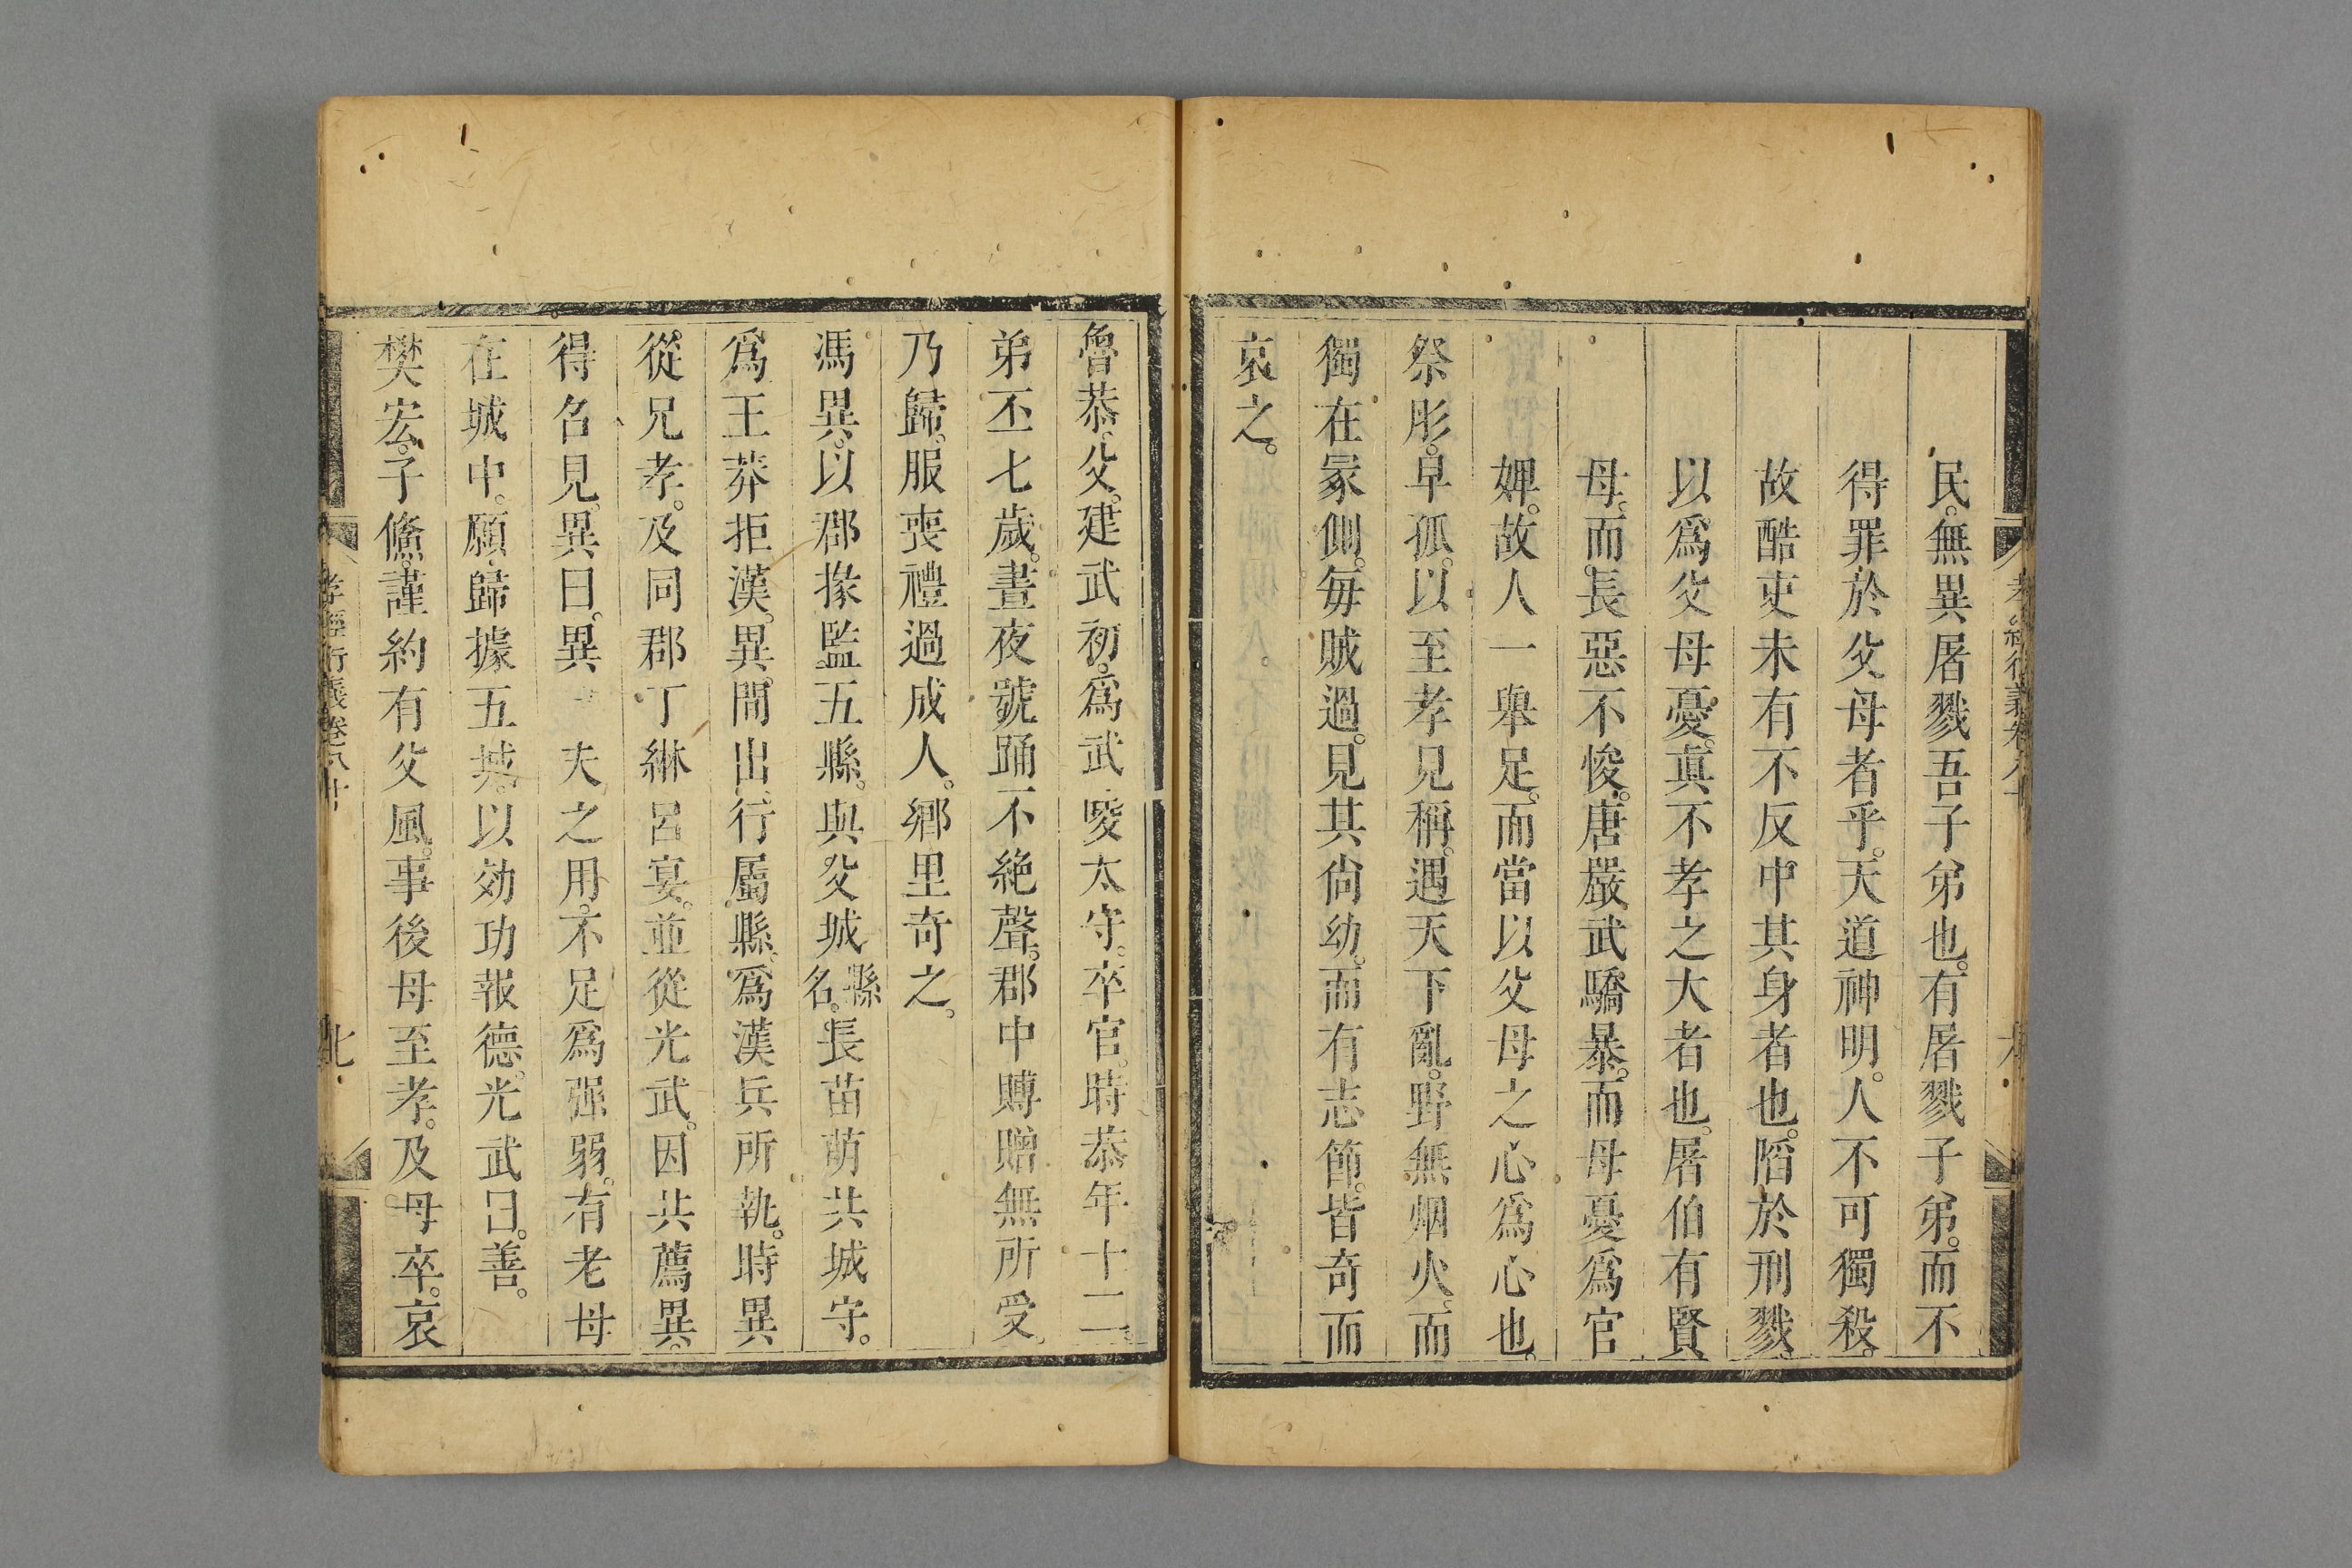 民。無異屠戮吾子弟也。有屠戮子弟。而不
得罪於父母者乎。天道神明。人不可獨殺。
故酷吏未有不反中其身者也。陷於刑戮。
以爲父母憂。眞不孝之大者也。屠伯有賢
母。而長惡不悛。唐嚴武驕暴。而母憂爲官
婢。故人一舉足。而當以父母之心爲心也。
祭肜。早孤。以至孝見稱。遇天下亂。野無烟火。而
獨在冡側。每賊過。見其尙幼。而有志節。皆奇而
哀之。
魯恭。父。建武初。爲武陵太守。卒官。時恭年十二
弟丕七歲。晝夜號踊不絶聲。郡中賻贈無所受。
乃歸。服喪禮過成人。鄉里奇之。
馮異。以郡掾監五縣。與父城縣名。長苗萌共城守。
爲王莽拒漢。異。間出行屬縣。爲漢兵所執。時異
從兄孝。及同郡丁綝呂宴。並從光武。因共薦異。
得召見。異曰。異一夫之用。不足爲强弱。有老母
在城中。願歸據五城。以効功報德。光武曰。善。
樊宏。子儵。謹約有父風。事後母至孝。及母卒。哀
孝經衍義卷八十